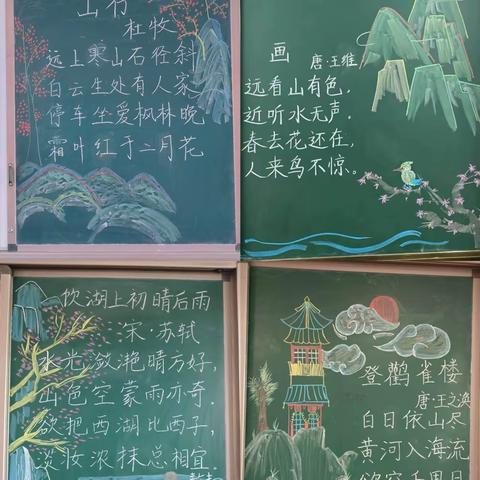 山行
杜牧
远上寒山石径斜
白云生处有人家
停车坐爱枫林晚
霜叶红于二月花
画
唐·王维
远看山有色，
近听水无声。
春去花还在，
人来鸟不惊。
饮湖上初晴后雨
宋·苏轼
水光潋滟晴方好，
山色空蒙雨亦奇。
欲把西湖比西子，
淡妆浓抹总相宜。
登鹳雀楼
唐·王之涣
白日依山尽
黄河入海流
欲穷千里目